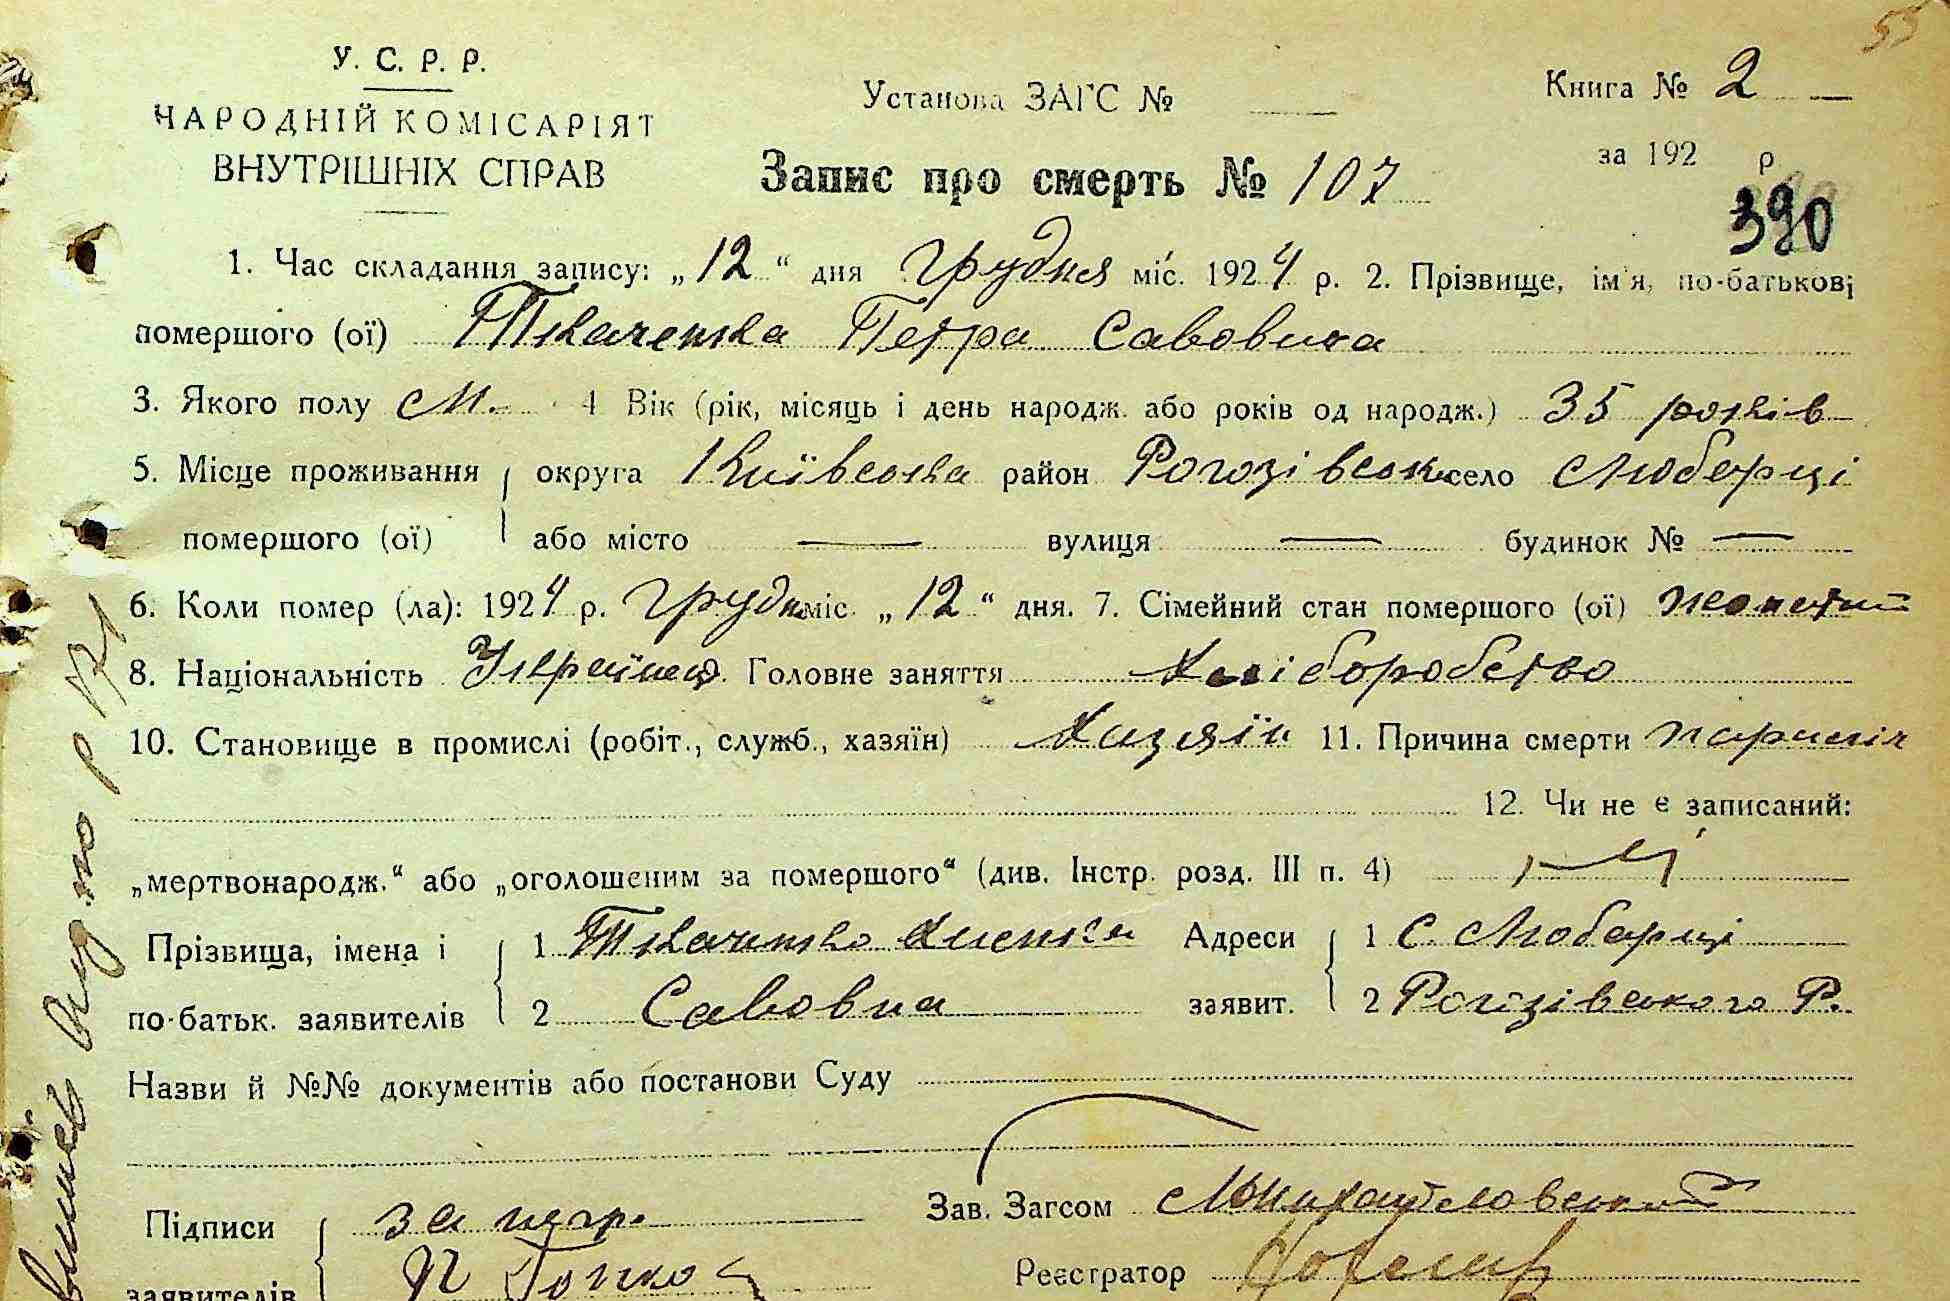 55
У. С. Р. Р.
НАРОДНІЙ КОМІСАРІЯТ
ВНУТРІШНІХ СПРАВ
Установа ЗАГС №
Книга № 2
за 192 р.
Запис про смерть № 107
390
1. Час складання запису: „12“ дня Грудня міс. 1924 р. 2. Прізвище, ім'я, по-батькові
помершого (ої) Ткаченка Петра Савовича
3. Якого полу М. 4 Вік (рік, місяць і день народж. або років од народж.) 35 років
5. Місце проживання округа Київська район Рогозівськ село Любарці
помершого (ої) або місто — вулиця — будинок № —
6. Коли помер (ла): 1924 р. Грудн міс. „12“ дня. 7. Сімейний стан помершого (ої) жонатий
8. Національність Українець. Головне заняття Хліборобство
10. Становище в промислі (робіт., служб., хазяїн) Хазяїн 11. Причина смерти
12. Чи не є записаний:
„мертвонародж.“ або „оголошеним за помершого“ (див. Інстр. розд. III п. 4) Ні
Прізвища, імена і 1 Ткаченко Адреси 1 С. Любарці
по-батьк. заявителів 2 Савовна заявит. 2 Рогозівського Р.
Назви й №№ документів або постанови Суду
Підписи за негр. Зав. Загсом Михайловський
заявителів Реєстратор